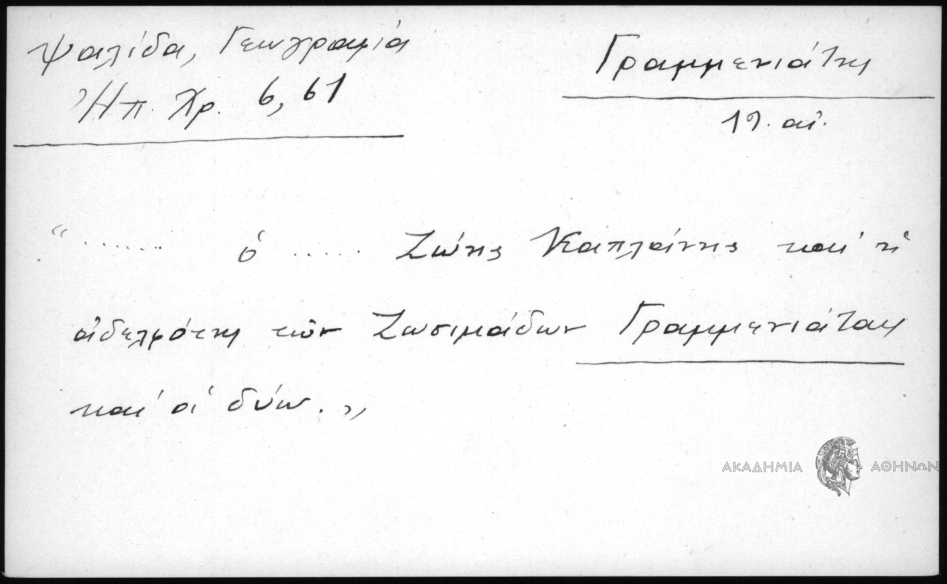 Ψαλίδα, Γεωγραφία
Ἠπ. Χρ. 6, 61
Γραμμενιάτης
19. αἰ.
"....... ὁ ..... Ζώης Καπλάνης καὶ ἡ
ἀδελφότης τῶν Ζωσιμάδων Γραμμενιάται
καὶ οἱ δύω."
ΑΚΑΔΗΜΙΑ ΑΘΗΝΩΝ